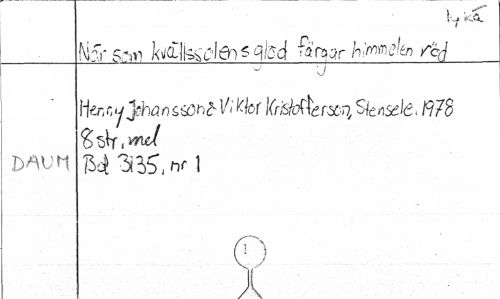 lykä
När som kvällssolens glöd färgar himmelen röd
Henny Johansson & Viktor Kristofferson, Stensele. 1978
8 str, mel
DAUM Bd 3135, nr 1
1